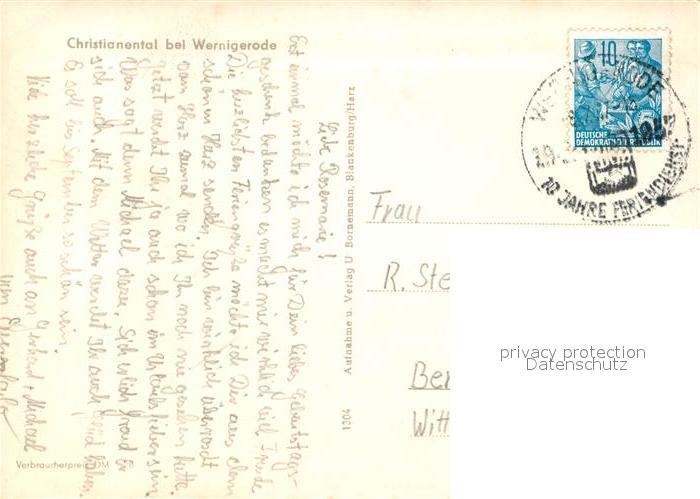 Christianental bei Wernigerode
Liebe Rosemarie!
Erst einmal möchte ich mich für Dein liebes Geburtstags-
geschenk bedanken es macht mir wirklich viel Freude
Die herzlichsten Feriengrüße möchte ich Dir aus dem
schönen Harz senden. Ich bin wirklich überrascht
vom Harz zumal wo ich ihn noch nie gesehen hatte.
Jetzt werdet Ihr ja auch schon im Urlaubsfieber sein
Was sagt denn Michael dazu. Sich
sich auch. Mit dem Wetter werdet Ihr auch Glück haben.
Es soll im September so schön sein.
Viele herzliche Grüße auch an Gerhard + Michael
von
Verbraucherpreis DM
1304 Aufnahme u. Verlag U Bornemann, Blankenburg/Harz
10
DEUTSCHE
DEMOKRATISCHE REPUBLIK
WERNIGERODE
10 JAHRE FERIENDIENST
Frau
R. Ste
Ber
Witt
privacy protection
Datenschutz